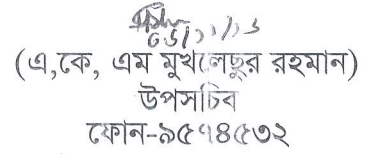 (এ,কে, এম মুখলেছুর রহমান)
উপসচিব
ফোন-৯৫৭৪৫৩২